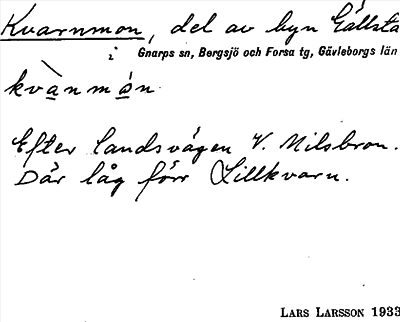 Kvarnmon, del av byn Gällsta
i Gnarps sn, Bergsjö och Forsa tg, Gävleborgs län
kvànmón
Efter landsvägen V. Milsbron.
Där låg förr Lillkvarn.
LARS LARSSON 1933